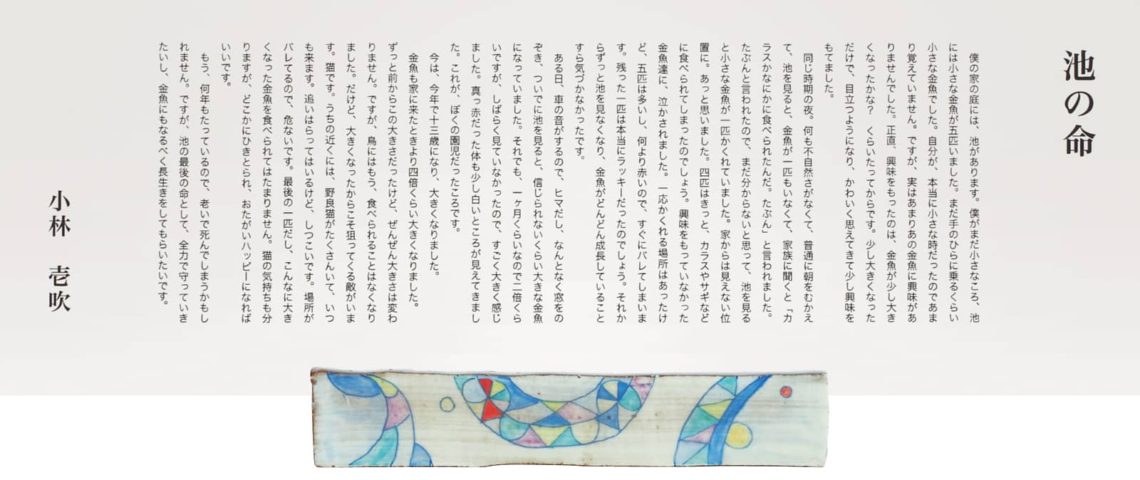 池の命
僕の家の庭には、池があります。僕がまだ小さなころ、池
には小さな金魚が五匹いました。まだ手のひらに乗るくらい
小さな金魚でした。自分が、本当に小さな時だったのであま
り覚えていません。ですが、実はあまりあの金魚に興味があ
りませんでした。正直、興味をもったのは、金魚が少し大き
くなったかな?くらいたってからです。少し大きくなった
だけで、目立つようになり、かわいく思えてきて少し興味を
もてました。
同じ時期の夜。何も不自然さがなくて、普通に朝をむかえ
て、池を見ると、金魚が一匹もいなくて、家族に聞くと「カ
ラスかなにかに食べられたんだ。たぶん」と言われました。
たぶんと言われたので、まだ分からないと思って、池を見る
と小さな金魚が一匹かくれていました。家からは見えない位
置に。あっと思いました。四匹はきっと、カラスやサギなど
に食べられてしまったのでしょう。興味をもっていなかった
金魚達に、泣かされました。一応かくれる場所はあったけ
ど、五匹は多いし、何より赤いので、すぐにバレてしまいま
す。残った一匹は本当にラッキーだったのでしょう。それか
らずっと池を見なくなり、金魚がどんどん成長していること
すら気づかなかったです。
ある日、車の音がするので、ヒマだし、なんとなく窓をの
ぞき、ついでに池を見ると、信じられないくらい大きな金魚
になっていました。それでも、一ヶ月くらいなので二倍くら
いですが、しばらく見ていなかったので、すごく大きく感じ
ました。真っ赤だった体も少し白いところが見えてきまし
た。これが、ぼくの園児だったころです。
今は、今年で十三歳になり、大きくなりました。
金魚も家に来たときより四倍くらい大きくなりました。
ずっと前からこの大きさだったけど、ぜんぜん大きさは変わ
りません。ですが、鳥にはもう、食べられることはなくなり
ました。だけど、大きくなったからこそ狙ってくる敵がいま
す。猫です。うちの近くには、野良猫がたくさんいて、いつ
も来ます。追いはらってはいるけど、しつこいです。場所が
バレてるので、危ないです。最後の一匹だし、こんなに大き
くなった金魚を食べられてはたまりません。猫の気持ちも分
りますが、どこかにひきとられ、おたがいハッピーになれば
いいです。
もう、何年もたっているので、老いで死んでしまうかもし
れません。ですが、池の最後の命として、全力で守っていき
たいし、金魚にもなるべく長生きをしてもらいたいです。
小林 壱吹